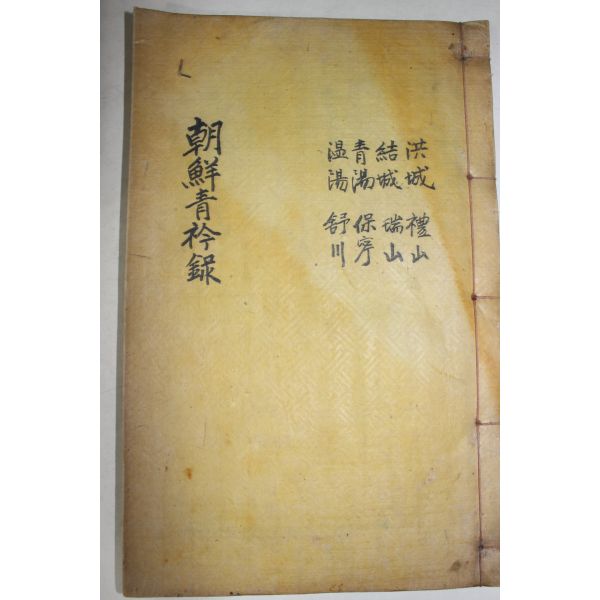 朝鮮青衿錄
洪城 禮山
結城 瑞山
青湯 保寧
温湯 舒川